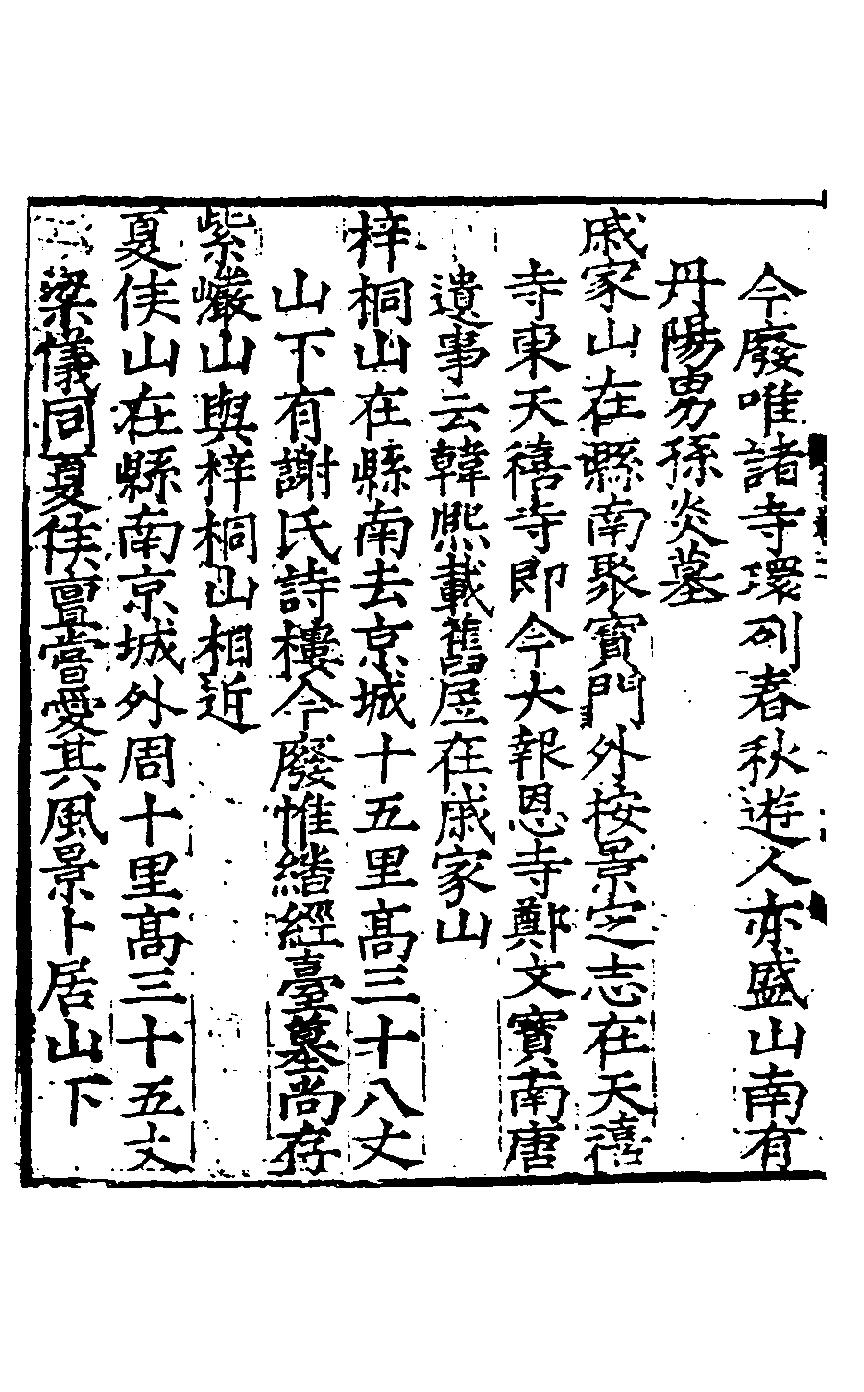 今廢唯諸寺環列春秋遊人亦盛山南有
丹陽男孫炎墓
戚家山在縣南聚寶門外按景定志在天禧
寺東天禧寺即今大報恩寺鄭文寶南唐
遺事云韓熈載舊居在戚家山
梓桐山在縣南去京城十五里髙三十八丈
山下有謝氏詩樓今廢惟繙經臺墓尚存
紫巖山與梓桐山相近
夏侯山在縣南京城外周十里髙三十五丈
梁儀同夏侯亶嘗愛其風景卜居山下